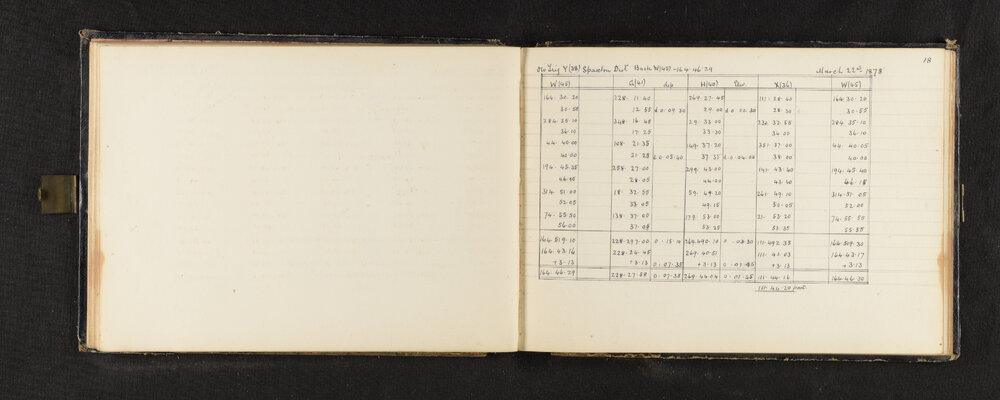 18
Old Trig Y (38) Spaxton Dist Back W(45) - 164. 46. 29 March 22nd 1878
W(45) G(41) dep H(40) Elev. X(36) W(45)
164. 30. 20 228. 11. 40 269. 27. 45 111. 28. 40 164. 30. 20
30. 50 12. 55 d. 0. 09. 30 29. 00 d. 0. 02. 30 28. 30 30. 55
284. 35. 10 348. 16. 45 29. 33. 00 231. 32. 55 284. 35. 10
36. 10 17. 25 33. 30 34. 00 36. 10
44. 40. 00 108. 21. 35 149. 37. 20 351. 37. 00 44. 40. 05
40. 00 21. 25 d. 0. 05. 40 37. 35 d. 0. 04. 00 38. 00 40. 00
194. 45. 35 258. 27. 00 299. 43. 00 141. 43. 40 194. 45. 40
46. 10 28. 05 44. 00 43. 40 46. 18
314. 51. 00 18. 32. 55 59. 49. 20 261. 49. 10 314. 51. 05
52. 05 33. 05 49. 15 50. 05 52. 00
74. 55. 50 138. 37. 00 179. 53. 00 21. 53. 20 74. 55. 50
56. 00 37. 05 53. 25 53. 35 55. 55
164. 519. 10 228. 297. 00 0. 15. 10 269. 490. 10 0. 03. 30 111. 492. 35 164. 519. 30
164. 43. 16 228. 24. 45 269. 40. 51 111. 41. 03 164. 43. 17
+ 3. 13 + 3. 13 0. 07. 35 + 3. 13 0. 01. 45 + 3. 13 + 3. 13
164. 46. 29 228. 27. 58 0. 07. 35 269. 44. 04 0. 01. 45 111. 44. 16 164. 46. 30
111. 44. 20 prot.